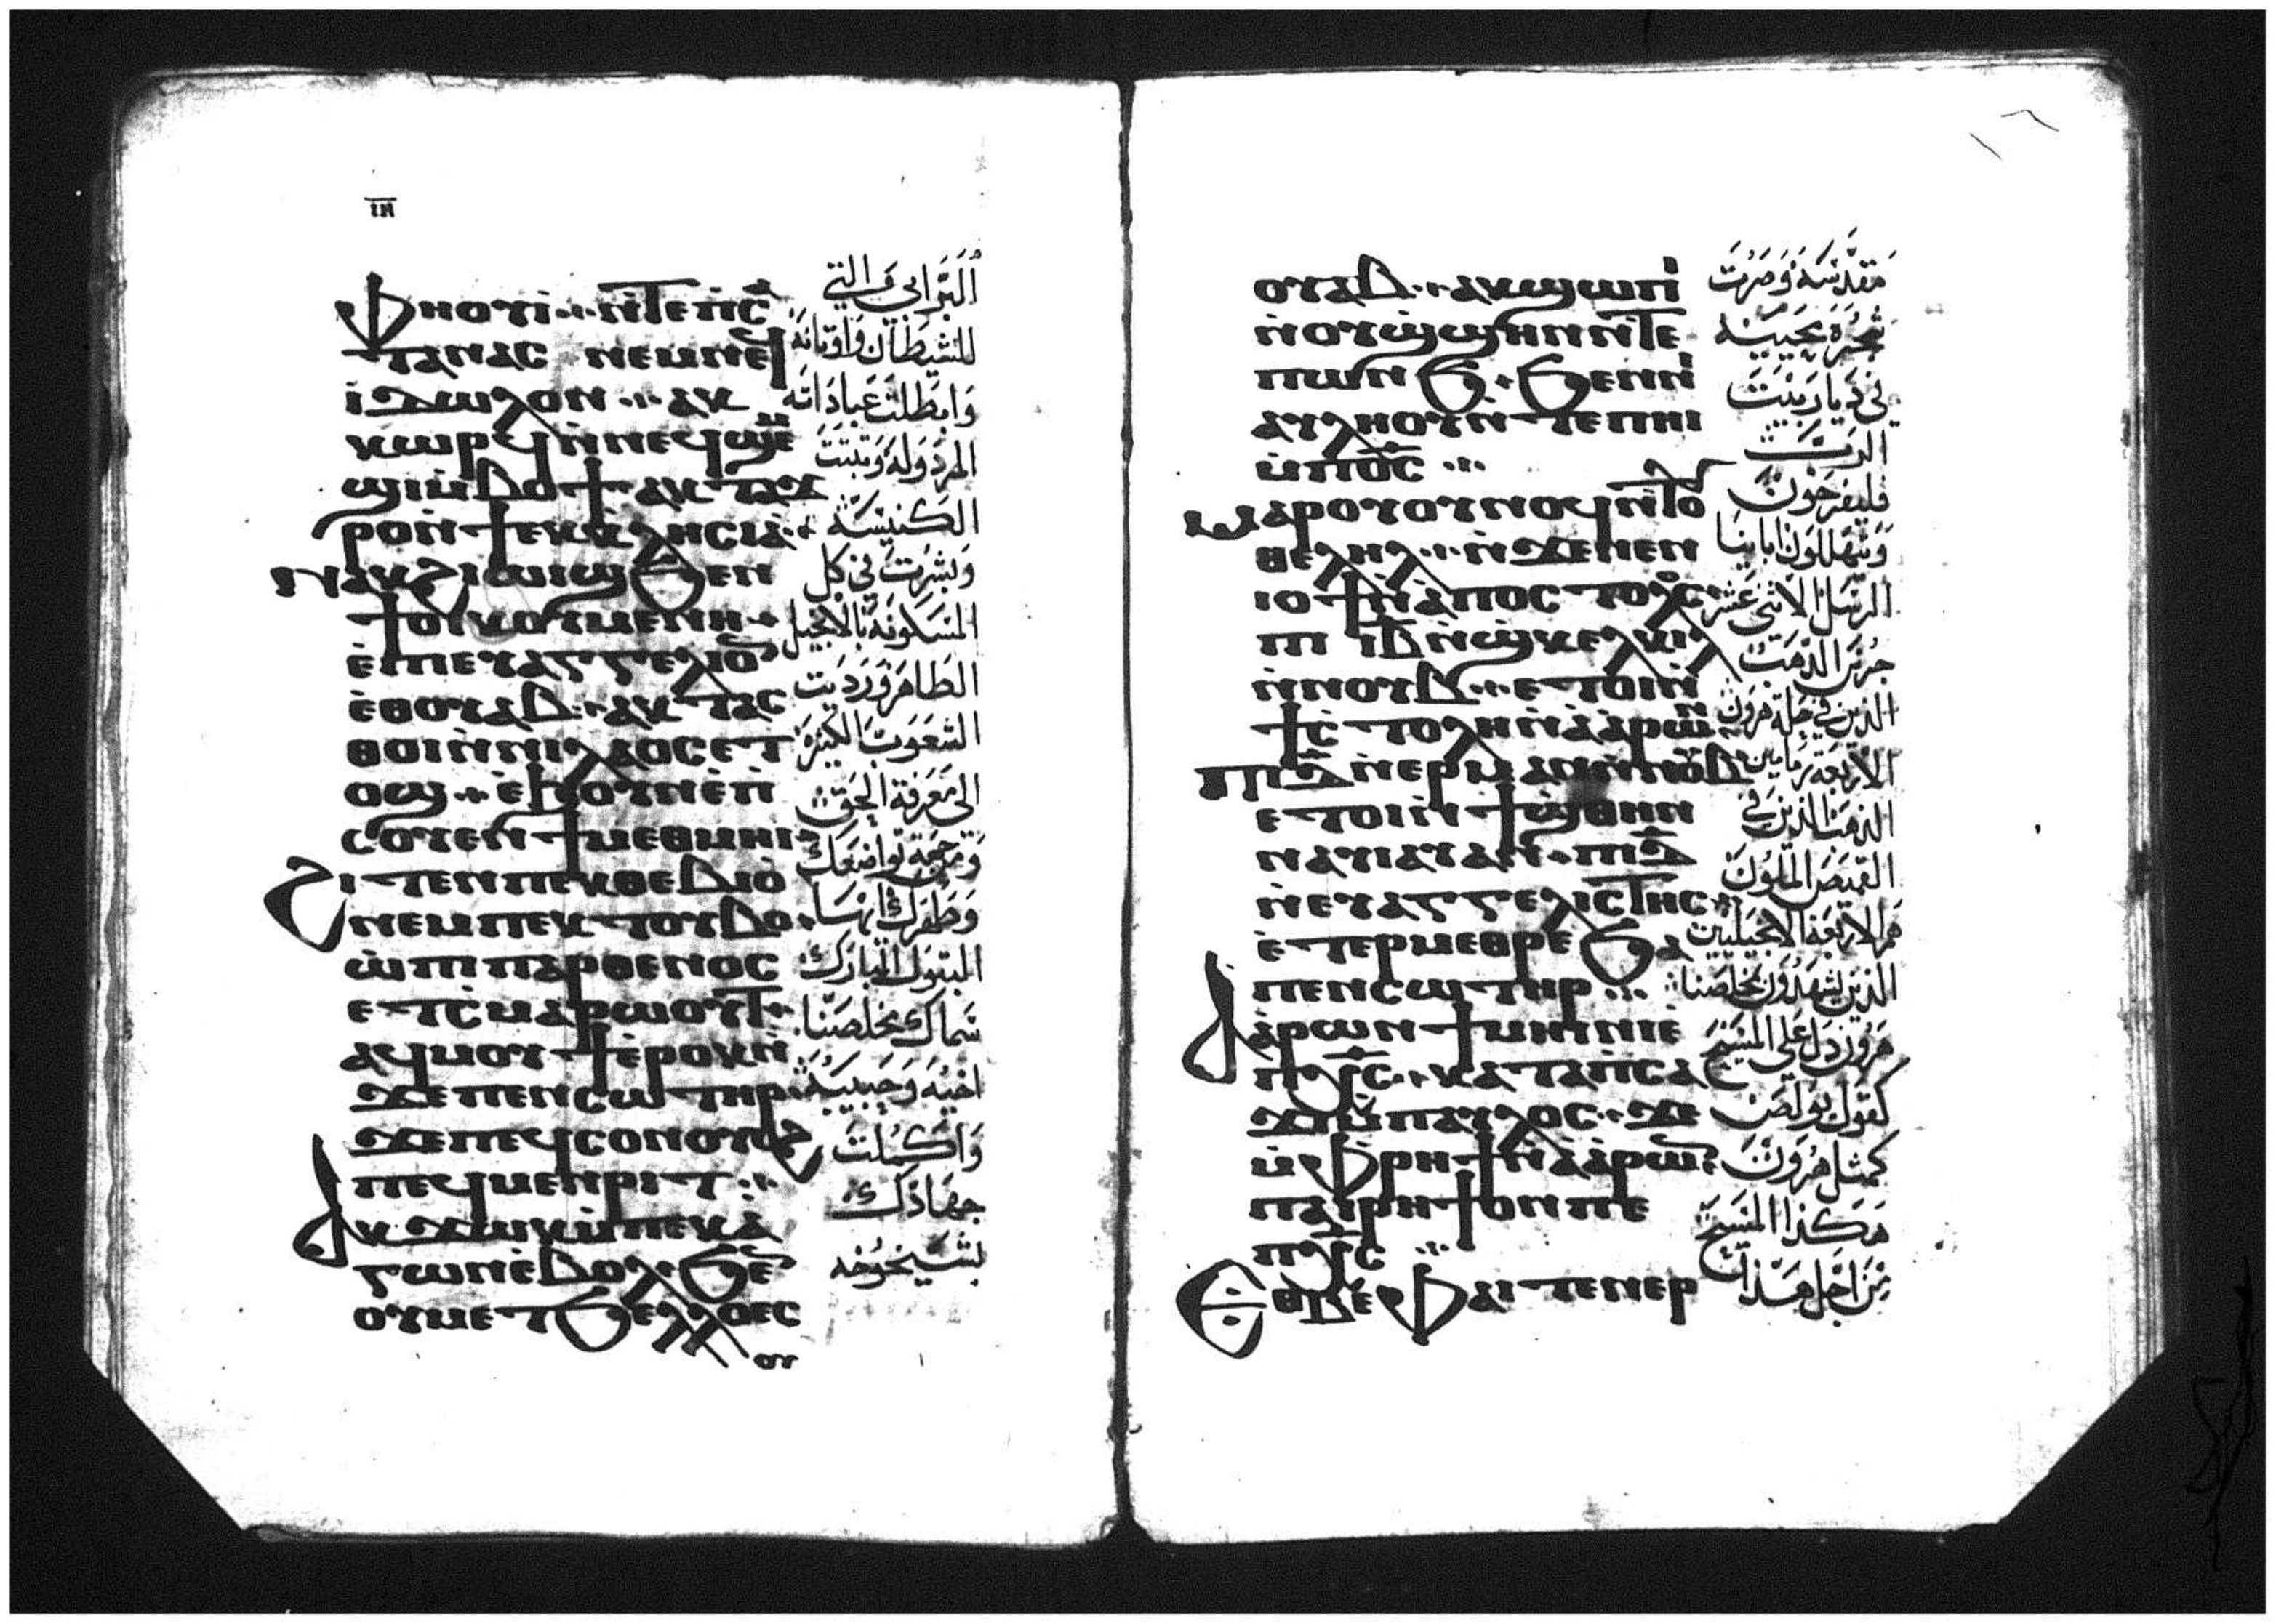 ⲓⲏ
ⲫⲏⲟⲩⲓ̀ ⲛ̀ⲧⲉⲡⲥ̀ⲁ
ⲧⲁⲛⲁⲥ ⲛⲉⲙⲛⲉϥ
ⲓ̀ⲇⲱⲗⲟⲛ ⲁⲕ
ⲕⲱⲣϥ ⲛ̀ⲛⲉϥϣⲉⲙ
ϣⲓⲙ̀ⲃⲟϯ ⲁⲕⲧⲁϫ
ⲣⲟⲛ̀ϯⲉⲕⲕⲗⲏⲥⲓⲁ
ⲁⲕϩⲓⲱⲓϣ ϧⲉⲛ
ϯⲟⲓⲕⲟⲩⲙⲉⲛⲏ
ⲉ̀ⲡⲓⲉⲩⲁⲅⲅⲉⲗⲓⲟⲛ
ⲉ̀ⲑⲟⲩⲁⲃ ⲁⲕⲧⲁⲥ
ⲑⲟⲓⲛ̀ⲛⲓⲗⲁⲟⲥⲉⲧ
ⲟϣ ⲉ̀ϧⲟⲩⲛⲉ̀ⲡ
ⲥⲟⲩⲉⲛϯⲙⲉⲑⲙⲏⲓ
ϩⲓⲧⲉⲛⲡⲉⲕⲑⲉⲃⲓⲟ̀
ⲛⲉⲙⲡⲉⲕⲧⲟⲩⲃⲟ
ⲱ̀ⲡⲓⲡⲁⲣⲑⲉⲛⲟⲥ
ⲉⲧⲥ̀ⲙⲁⲣⲱⲟⲩⲧ
ⲁϥⲙⲟⲩϯⲉ̀ⲣⲟⲕⲛ̀
ϫⲉⲡⲉⲛⲥⲱⲧⲏⲣ
ϫⲉⲡⲉϥⲥⲟⲛⲟⲩⲟϩ
ⲡⲉϥⲙⲉⲛⲣⲓⲧ
ⲁⲕϫⲱⲕⲙ̀ⲡⲉⲕⲁ̀
ⲅⲱⲛⲉ̀ⲃⲟⲗ ϧⲉⲛ
ⲟⲩⲙⲉⲧϧⲉⲗⲗⲟⲉⲥ
ⲟⲩ
البرابي التي
للشيطان واوثانه
وابطلت عباداته
المرذوله وثبتت
الكنيسة
وبشرت في كل
المسكونة بالانجيل
الطاهر ورديت
الشعوب الكثيرة
الى معرفة الحق
ومن جهة تواضعك
وطهرك ايها
البتول المبارك
سماك مخلصنا
اخيه وحبيبه
واكملت
جهادك
بشيخوخه
ⲟⲩⲁⲃ ⲁⲕϣⲱⲡⲓ
ⲛ̀ⲟⲩϣ̀ϣⲏⲛⲛ̀ⲧⲉ
ⲡⲱⲛϧ ϧⲉⲛⲛⲓ
ⲁⲩⲗⲏⲟⲩⲛ̀ⲧⲉⲡⲏⲓ
ⲙ̀ⲡⲟ̅ⲥ̅
ⲙⲁⲣⲟⲩⲟⲩⲛⲟϥⲛ̀ⲧⲟⲩ
ⲑⲉⲗⲏⲗ ⲛ̀ϫⲉⲛⲉⲛ
ⲓⲟϯⲛ̀ⲁ̀ⲡⲟⲥⲧⲟⲗⲟⲥ
ⲡⲓ ⲓⲃ̅ⲛ̀ϣⲕⲉⲗⲕⲓⲗ
ⲛ̀ⲛⲟⲩⲃ ⲉⲧⲟⲓⲛ̀
ϯⲥ̀ⲧⲟⲗⲏⲛ̀ⲁ̀ⲁ̀ⲣⲱⲛ
ⲡⲓⲇ̅ⲛ̀ⲉⲣⲙⲁⲛⲛ̀ⲛⲟⲩⲃ
ⲉⲧⲟⲓⲛ̀ϯϣⲑⲏⲛ
ⲛⲁⲩⲓⲁⲩⲁⲛ ⲡⲓⲇ̅
ⲛ̀ⲉⲩⲁⲅⲅⲉⲗⲓⲥⲧⲏⲥ
ⲉ̀ⲧⲉⲣⲙⲉⲑⲣⲉ ϧⲁ
ⲡⲉⲛⲥⲱⲧⲏⲣ
ⲁⲁ̀ⲣⲱⲛϯⲙⲏⲓⲛⲓⲉ̀
ⲡⲭ̅ⲥ̅ ⲕⲁⲧⲁⲡⲥⲁ
ϫⲓⲙ̀ⲡⲁⲩⲗⲟⲥ ϫⲉ
ⲙ̀ⲫⲣⲏϯⲛ̀ⲁ̀ⲁ̀ⲣⲱⲛ
ⲡⲁⲓⲣⲏϯⲟⲛⲡⲉ
ⲡⲭ̅ⲥ̅
ⲉⲑⲃⲉⲫⲁⲓⲧⲉⲛⲉⲣ
مقدسه وصرت
شجرة محييه
في ديار بيت
الرب
فليفرحون
ويتهللون ابائنا
الرسل الاثنى عشر
جرس الذهب
الذين في حلة هرون
الاربعة رمامين
الذهب الذين في
القميص الملون
هم الاربعة الانجيليين
الذين يشهدون بمخلصنا
هرون دل على المسيح
كقول بولص
كمثل هرون
هكذا المسيح
من اجل هذا